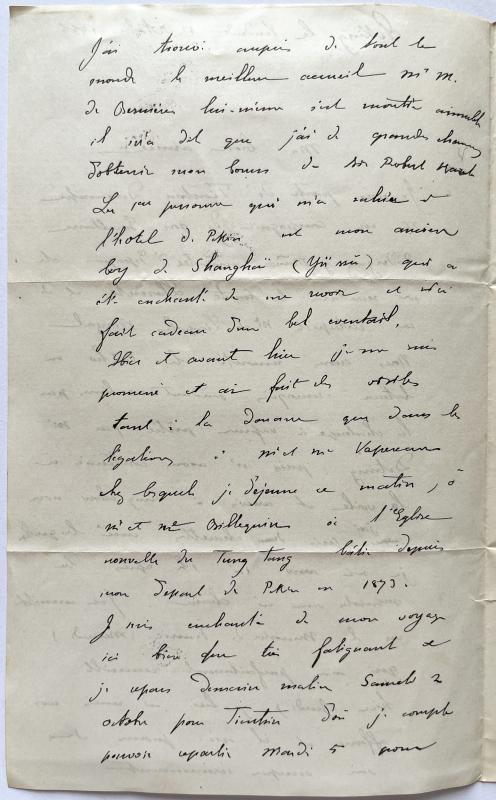 J'ai trouvé auprès de tout le
monde le meilleur accueil Mr M.
de Bernières lui-même s'est montré aimable
il m'a dit que j'ai de grandes chances
d'obtenir mon bonus de Sir Robert Hart
La 1ère personne qui m'a salué à
l'hotel de Pékin est mon ancien
boy de Shanghaï (Yü ) qui a
été enchanté de me revoir et m'a
fait cadeau d'un bel eventail,
Hier et avant hier je me suis
promené et ai fait des visites
tant à la douane que dans les
légations, à Mr et Me Vapereau
chez lesquels je déjeune ce matin, à
Mr et Me Billequin à l'Eglise
nouvelle du Tung tang bâtie depuis
mon depart de Pékin en 1873.
Je suis enchanté de mon voyage
ici bien que très fatiguant et
je repars demain matin Samedi 2
octobre pour Tientsin d'où je compte
pouvoir repartir mardi 5 pour